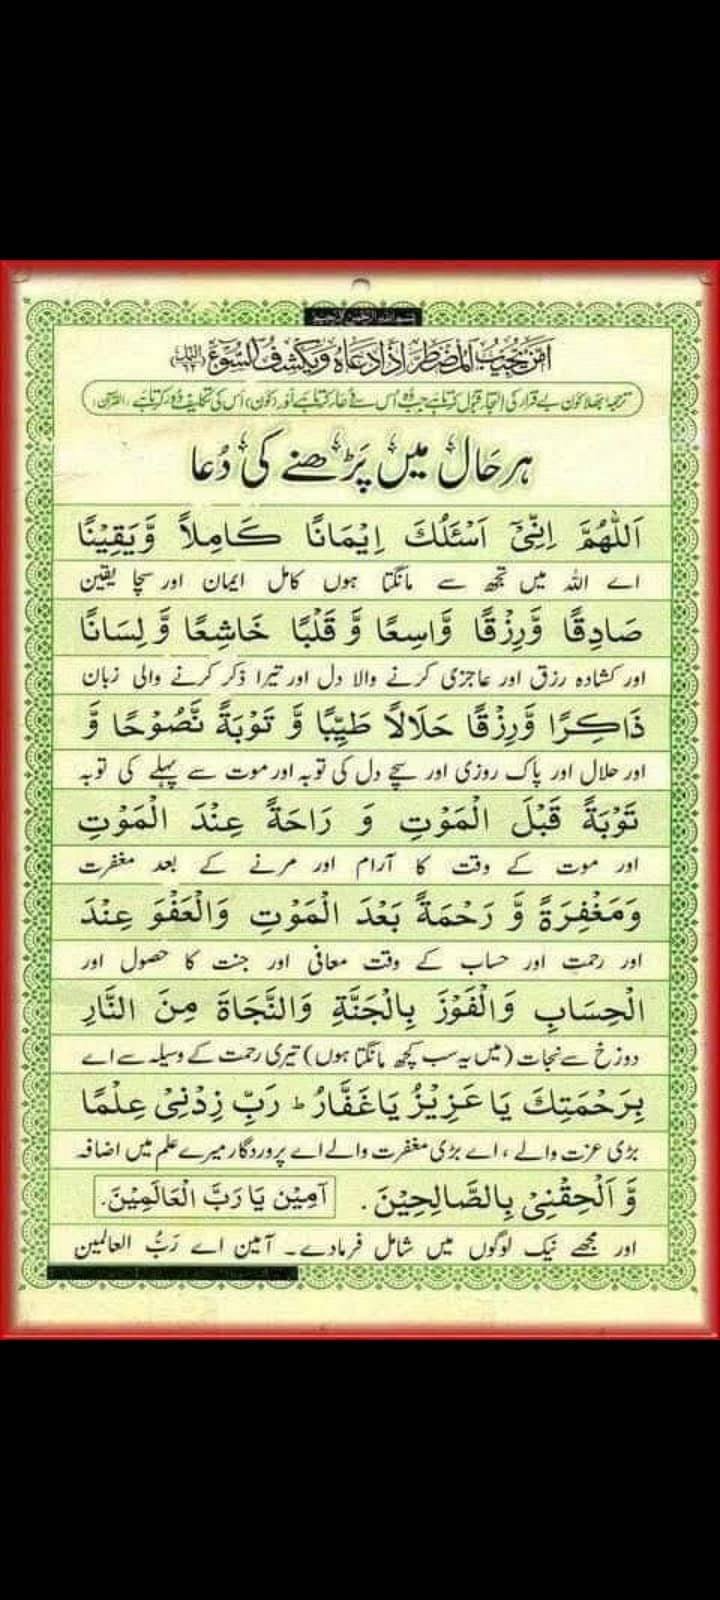 بسم الله الرحمن الرحيم
اَمَّنْ يُّجِيْبُ الْمُضْطَرَّ اِذَا دَعَاهُ وَيَكْشِفُ السُّوْٓءَ (النمل ٦٢)
ترجمہ: بھلا کون بے قرار کی التجا قبول کرتا ہے جب وہ اُس سے دُعا کرتا ہے اور (کون) اُس کی تکلیف دُور کرتا ہے (القرآن)
ہر حَال میں پَڑھنے کی دُعا
اَللّٰهُمَّ اِنِّیْٓ اَسْئَلُكَ اِيْمَانًا كَامِلاً وَّيَقِيْنًا
اے اللہ میں تجھ سے مانگتا ہوں کامل ایمان اور سچا یقین
صَادِقًا وَّرِزْقًا وَّاسِعًا وَّ قَلْبًا خَاشِعًا وَّ لِسَانًا
اور کشادہ رزق اور عاجزی کرنے والا دل اور تیرا ذکر کرنے والی زبان
ذَاكِرًا وَّرِزْقًا حَلَالًا طَيِّبًا وَّ تَوْبَةً نَّصُوْحًا وَّ
اور حلال اور پاک روزی اور سچے دل کی توبہ اور موت سے پہلے کی توبہ
تَوْبَةً قَبْلَ الْمَوْتِ وَ رَاحَةً عِنْدَ الْمَوْتِ
اور موت کے وقت کا آرام اور مرنے کے بعد مغفرت
وَمَغْفِرَةً وَّ رَحْمَةً بَعْدَ الْمَوْتِ وَالْعَفْوَ عِنْدَ
اور رحمت اور حساب کے وقت معافی اور جنت کا حصول اور
الْحِسَابِ وَالْفَوْزَ بِالْجَنَّةِ وَالنَّجَاةَ مِنَ النَّارِ
دوزخ سے نجات (میں یہ سب کچھ مانگتا ہوں) تیری رحمت کے وسیلہ سے اے
بِرَحْمَتِكَ يَا عَزِيْزُ يَاغَفَّارُ ط رَبِّ زِدْنِیْ عِلْمًا
بڑی عزت والے، اے بڑی مغفرت والے اے پروردگار میرے علم میں اضافہ
وَّ اَلْحِقْنِیْ بِالصَّالِحِيْنَ. آمِيْن يَا رَبَّ الْعَالَمِيْنَ.
اور مجھے نیک لوگوں میں شامل فرمادے۔ آمین اے رَبُّ العالمین